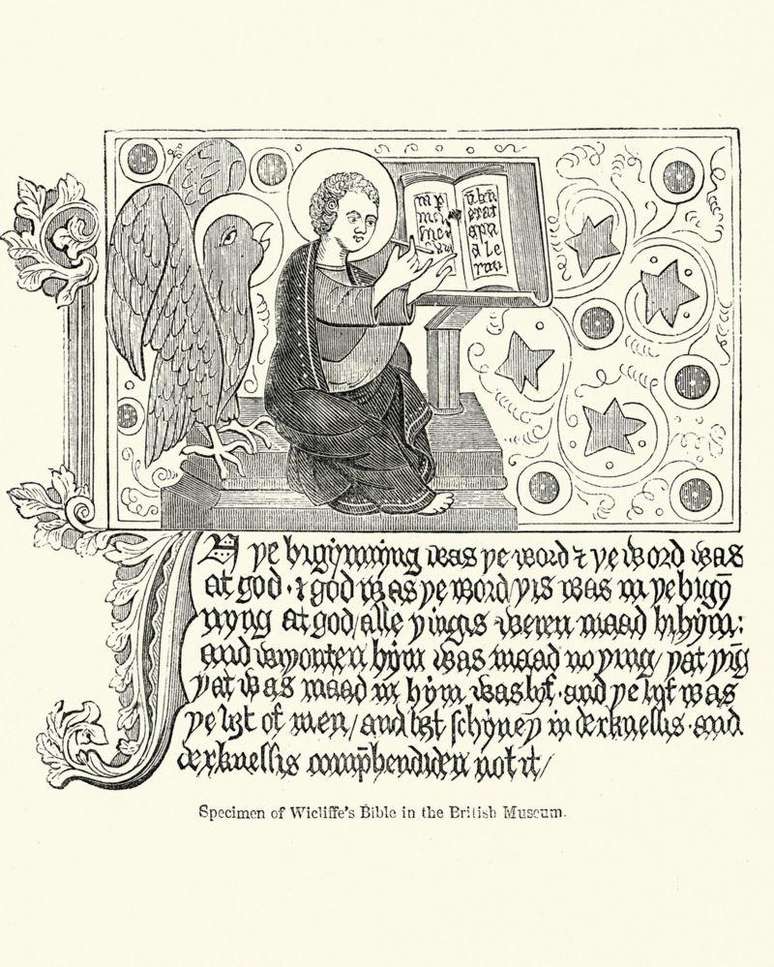 erat
apu
IN ye bigynnyng was ye word ⁊ ye word was
at god · ⁊ god was ye word/ yis was in ye bigȳ
nyng at god/ alle yingis weren maad bi hẏm:
and wiyouten hẏm was maad no ying/ yat yīg
yat was maad in hẏm was lyf · and ye lyf was
ye lyȝt of men/ and lyȝt schẏney in derknessis · and
derknessis comp̄hendiden not it/
Specimen of Wicliffe's Bible in the British Museum.